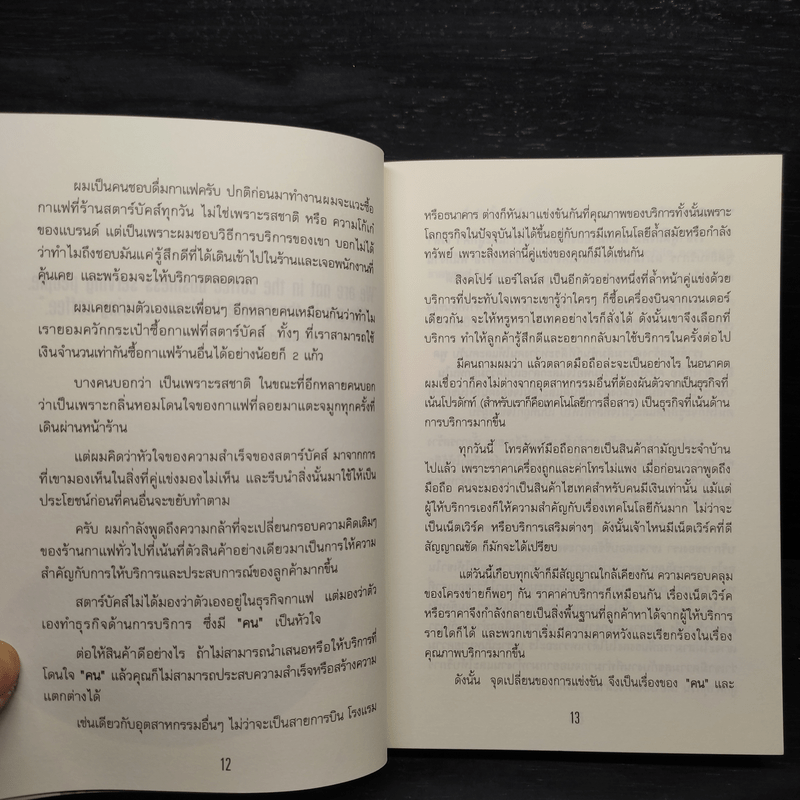 ผมเป็นคนชอบดื่มกาแฟครับ ปกติก่อนมาทำงานผมจะแวะซื้อ
กาแฟที่ร้านสตาร์บัคส์ทุกวัน ไม่ใช่เพราะรสชาติ หรือ ความโก้เก๋
ของแบรนด์ แต่เป็นเพราะผมชอบวิธีการบริการของเขา บอกไม่ได้
ว่าทำไมถึงชอบมันแค่รู้สึกดีที่ได้เดินเข้าไปในร้านและเจอพนักงานที่
คุ้นเคย และพร้อมจะให้บริการตลอดเวลา
ผมเคยถามตัวเองและเพื่อนๆ อีกหลายคนเหมือนกันว่าทำไม
เรายอมควักกระเป๋าซื้อกาแฟที่สตาร์บัคส์ ทั้งๆ ที่เราสามารถใช้
เงินจำนวนเท่ากันซื้อกาแฟร้านอื่นได้อย่างน้อยก็ 2 แก้ว
บางคนบอกว่า เป็นเพราะรสชาติ ในขณะที่อีกหลายคนบอก
ว่าเป็นเพราะกลิ่นหอมโดนใจของกาแฟที่ลอยมาแตะจมูกทุกครั้งที่
เดินผ่านหน้าร้าน
แต่ผมคิดว่าหัวใจของความสำเร็จของสตาร์บัคส์ มาจากการ
ที่เขามองเห็นในสิ่งที่คู่แข่งมองไม่เห็น และรีบนำสิ่งนั้นมาใช้ให้เป็น
ประโยชน์ก่อนที่คนอื่นจะขยับทำตาม
ครับ ผมกำลังพูดถึงความกล้าที่จะเปลี่ยนกรอบความคิดเดิมๆ
ของร้านกาแฟทั่วไปที่เน้นที่ตัวสินค้าอย่างเดียวมาเป็นการให้ความ
สำคัญกับการให้บริการและประสบการณ์ของลูกค้ามากขึ้น
สตาร์บัคส์ไม่ได้มองว่าตัวเองอยู่ในธุรกิจกาแฟ แต่มองว่าตัว
เองทำธุรกิจด้านการบริการ ซึ่งมี "คน" เป็นหัวใจ
ต่อให้สินค้าดีอย่างไร ถ้าไม่สามารถนำเสนอหรือให้บริการที่
โดนใจ "คน" แล้วคุณก็ไม่สามารถประสบความสำเร็จหรือสร้างความ
แตกต่างได้
เช่นเดียวกับอุตสาหกรรมอื่นๆ ไม่ว่าจะเป็นสายการบิน โรงแรม
12
หรือธนาคาร ต่างก็หันมาแข่งขันกันที่คุณภาพของบริการทั้งนั้นเพราะ
โลกธุรกิจในปัจจุบันไม่ได้ขึ้นอยู่กับการมีเทคโนโลยีล้ำสมัยหรือกำลัง
ทรัพย์ เพราะสิ่งเหล่านี้คู่แข่งของคุณก็มีได้เช่นกัน
สิงคโปร์ แอร์ไลน์ส เป็นอีกตัวอย่างหนึ่งที่ล้ำหน้าคู่แข่งด้วย
บริการที่ประทับใจเพราะเขารู้ว่าใครๆ ก็ซื้อเครื่องบินจากเวนเดอร์
เดียวกัน จะให้หรูหราไฮเทคอย่างไรก็สั่งได้ ดังนั้นเขาจึงเลือกที่
บริการ ทำให้ลูกค้ารู้สึกดีและอยากกลับมาใช้บริการในครั้งต่อไป
มีคนถามผมว่า แล้วตลาดมือถือล่ะจะเป็นอย่างไร ในอนาคต
ผมเชื่อว่าก็คงไม่ต่างจากอุตสาหกรรมอื่นที่ต้องผันตัวจากเป็นธุรกิจที่
เน้นโปรดักท์ (สำหรับเราก็คือเทคโนโลยีการสื่อสาร) เป็นธุรกิจที่เน้นด้าน
การบริการมากขึ้น
ทุกวันนี้ โทรศัพท์มือถือกลายเป็นสินค้าสามัญประจำบ้าน
ไปแล้ว เพราะราคาเครื่องถูกและค่าโทรไม่แพง เมื่อก่อนเวลาพูดถึง
มือถือ คนจะมองว่าเป็นสินค้าไฮเทคสำหรับคนมีเงินเท่านั้น แม้แต่
ผู้ให้บริการเองก็ให้ความสำคัญกับเรื่องเทคโนโลยีกันมาก ไม่ว่าจะ
เป็นเน็ตเวิร์ค หรือบริการเสริมต่างๆ ดังนั้นเจ้าไหนมีเน็ตเวิร์คที่ดี
สัญญาณชัด ก็มักจะได้เปรียบ
แต่วันนี้เกือบทุกเจ้าก็มีสัญญาณใกล้เคียงกัน ความครอบคลุม
ของโครงข่ายก็พอๆ กัน ราคาค่าบริการก็เหมือนกัน เรื่องเน็ตเวิร์ค
หรือราคาจึงกำลังกลายเป็นสิ่งพื้นฐานที่ลูกค้าหาได้จากผู้ให้บริการ
รายใดก็ได้ และพวกเขาเริ่มมีความคาดหวังและเรียกร้องในเรื่อง
คุณภาพบริการมากขึ้น
ดังนั้น จุดเปลี่ยนของการแข่งขัน จึงเป็นเรื่องของ "คน" และ
13